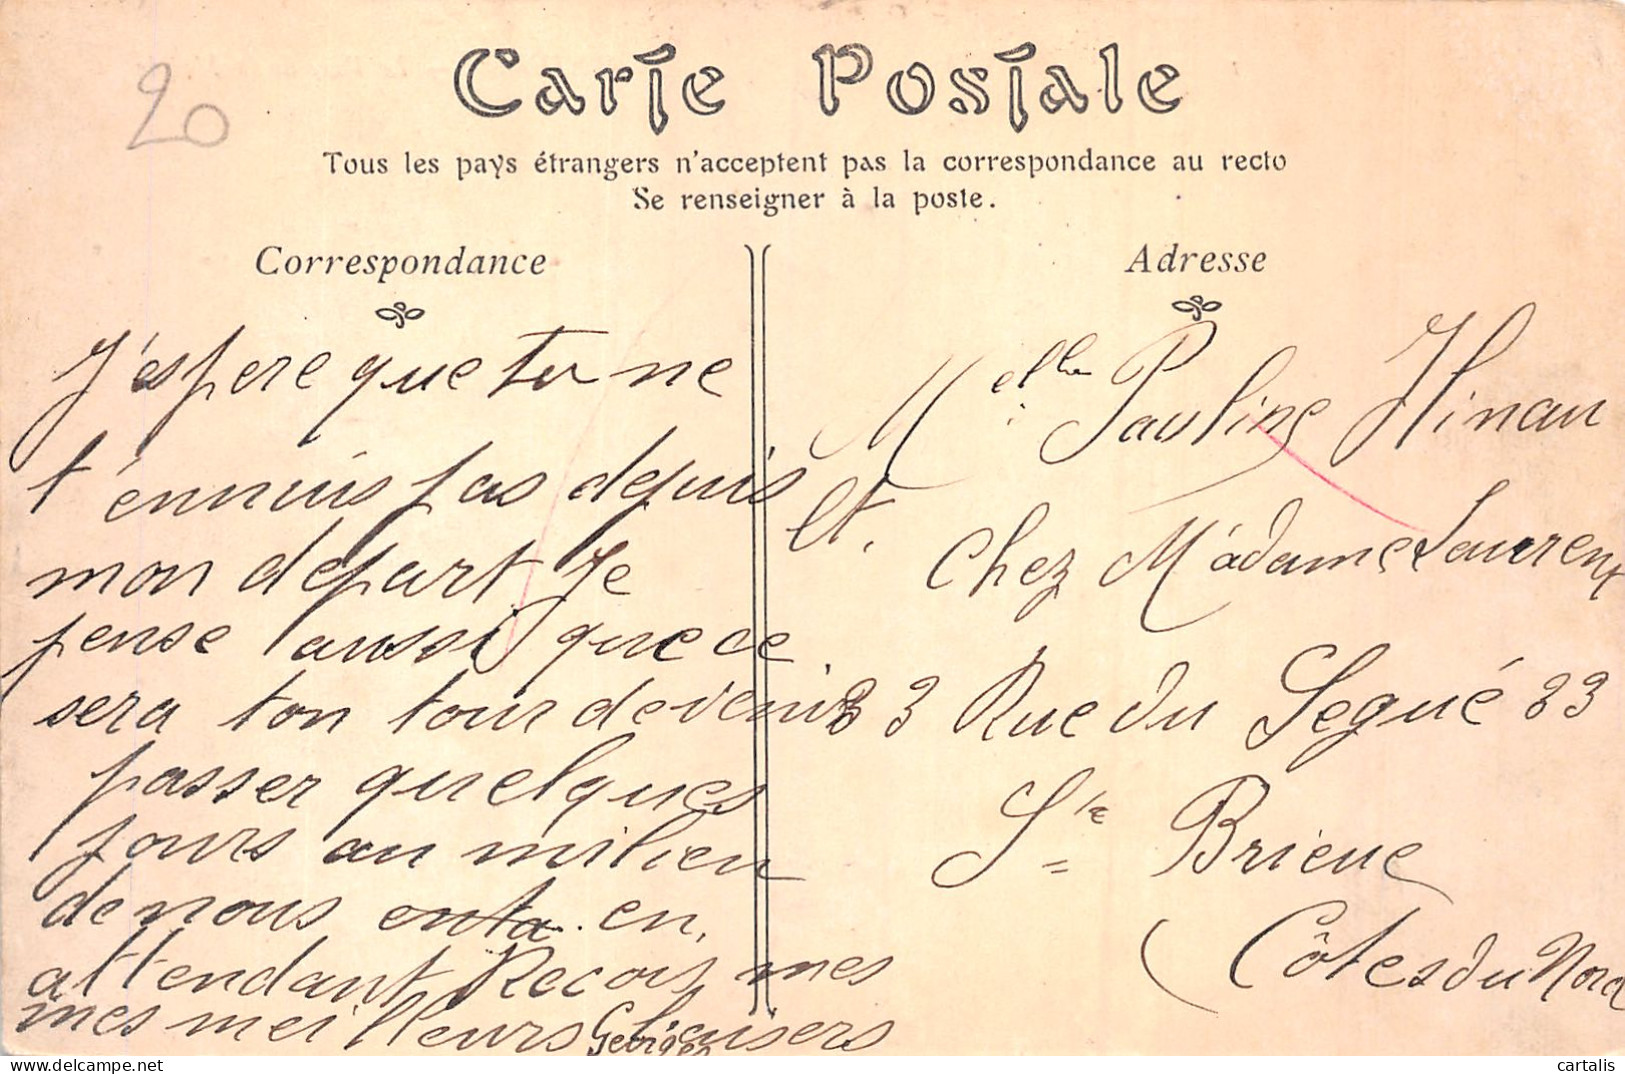 20
Carte Postale
Tous les pays étrangers n'acceptent pas la correspondance au recto
Se renseigner à la poste.
Correspondance
J'espere que tu ne
t'ennuis pas depuis
mon départ Je
pense aussi que ce
sera ton tour de venir
passer quelques
jours au milieu
de nous en
attendant Recois mes
mes meilleurs baisers
Georges
Adresse
Melle Pauline Hinau
Chez Madame Laurent
83 Rue du Legué 83
St Brieuc
Côtes du Nord
delcampe.net
cartalis